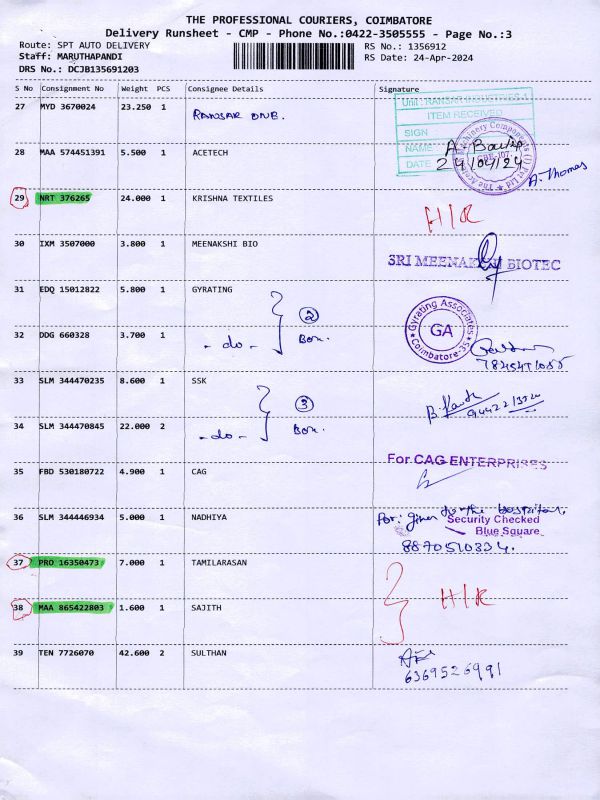 THE PROFESSIONAL COURIERS, COIMBATORE
Delivery Runsheet - CMP - Phone No.:0422-3505555 - Page No.:3
Route: SPT AUTO DELIVERY
RS No.: 1356912
Staff: MARUTHAPANDI
RS Date: 24-Apr-2024
DRS No.: DCJB135691203
S No Consignment No Weight PCS Consignee Details Signature
27 MYD 3670024 23.250 1 RANSAR DNB.
Unit: RANSAR INDUSTRIES-1
ITEM RECEIVED
SIGN
NAME
DATE 24/04/24
28 MAA 574451391 5.500 1 ACETECH
A. Thomas
29 NRT 376265 24.000 1 KRISHNA TEXTILES H/R
30 IXM 3507000 3.800 1 MEENAKSHI BIO SRI MEENAKSHI BIOTEC
31 EDQ 15012822 5.800 1 GYRATING
2 Box.
Gyrating Associates
GA
Coimbatore-35
32 DDG 660328 3.700 1 - do -
33 SLM 344470235 8.600 1 SSK
3 Box.
34 SLM 344470845 22.000 2 - do -
35 FBD 530180722 4.900 1 CAG For CAG ENTERPRISES
36 SLM 344446934 5.000 1 NADHIYA
Security Checked
Blue Square
8870510334.
37 PRO 16350473 7.000 1 TAMILARASAN
38 MAA 865422803 1.600 1 SAJITH H/R
39 TEN 7726070 42.600 2 SULTHAN
6369526991